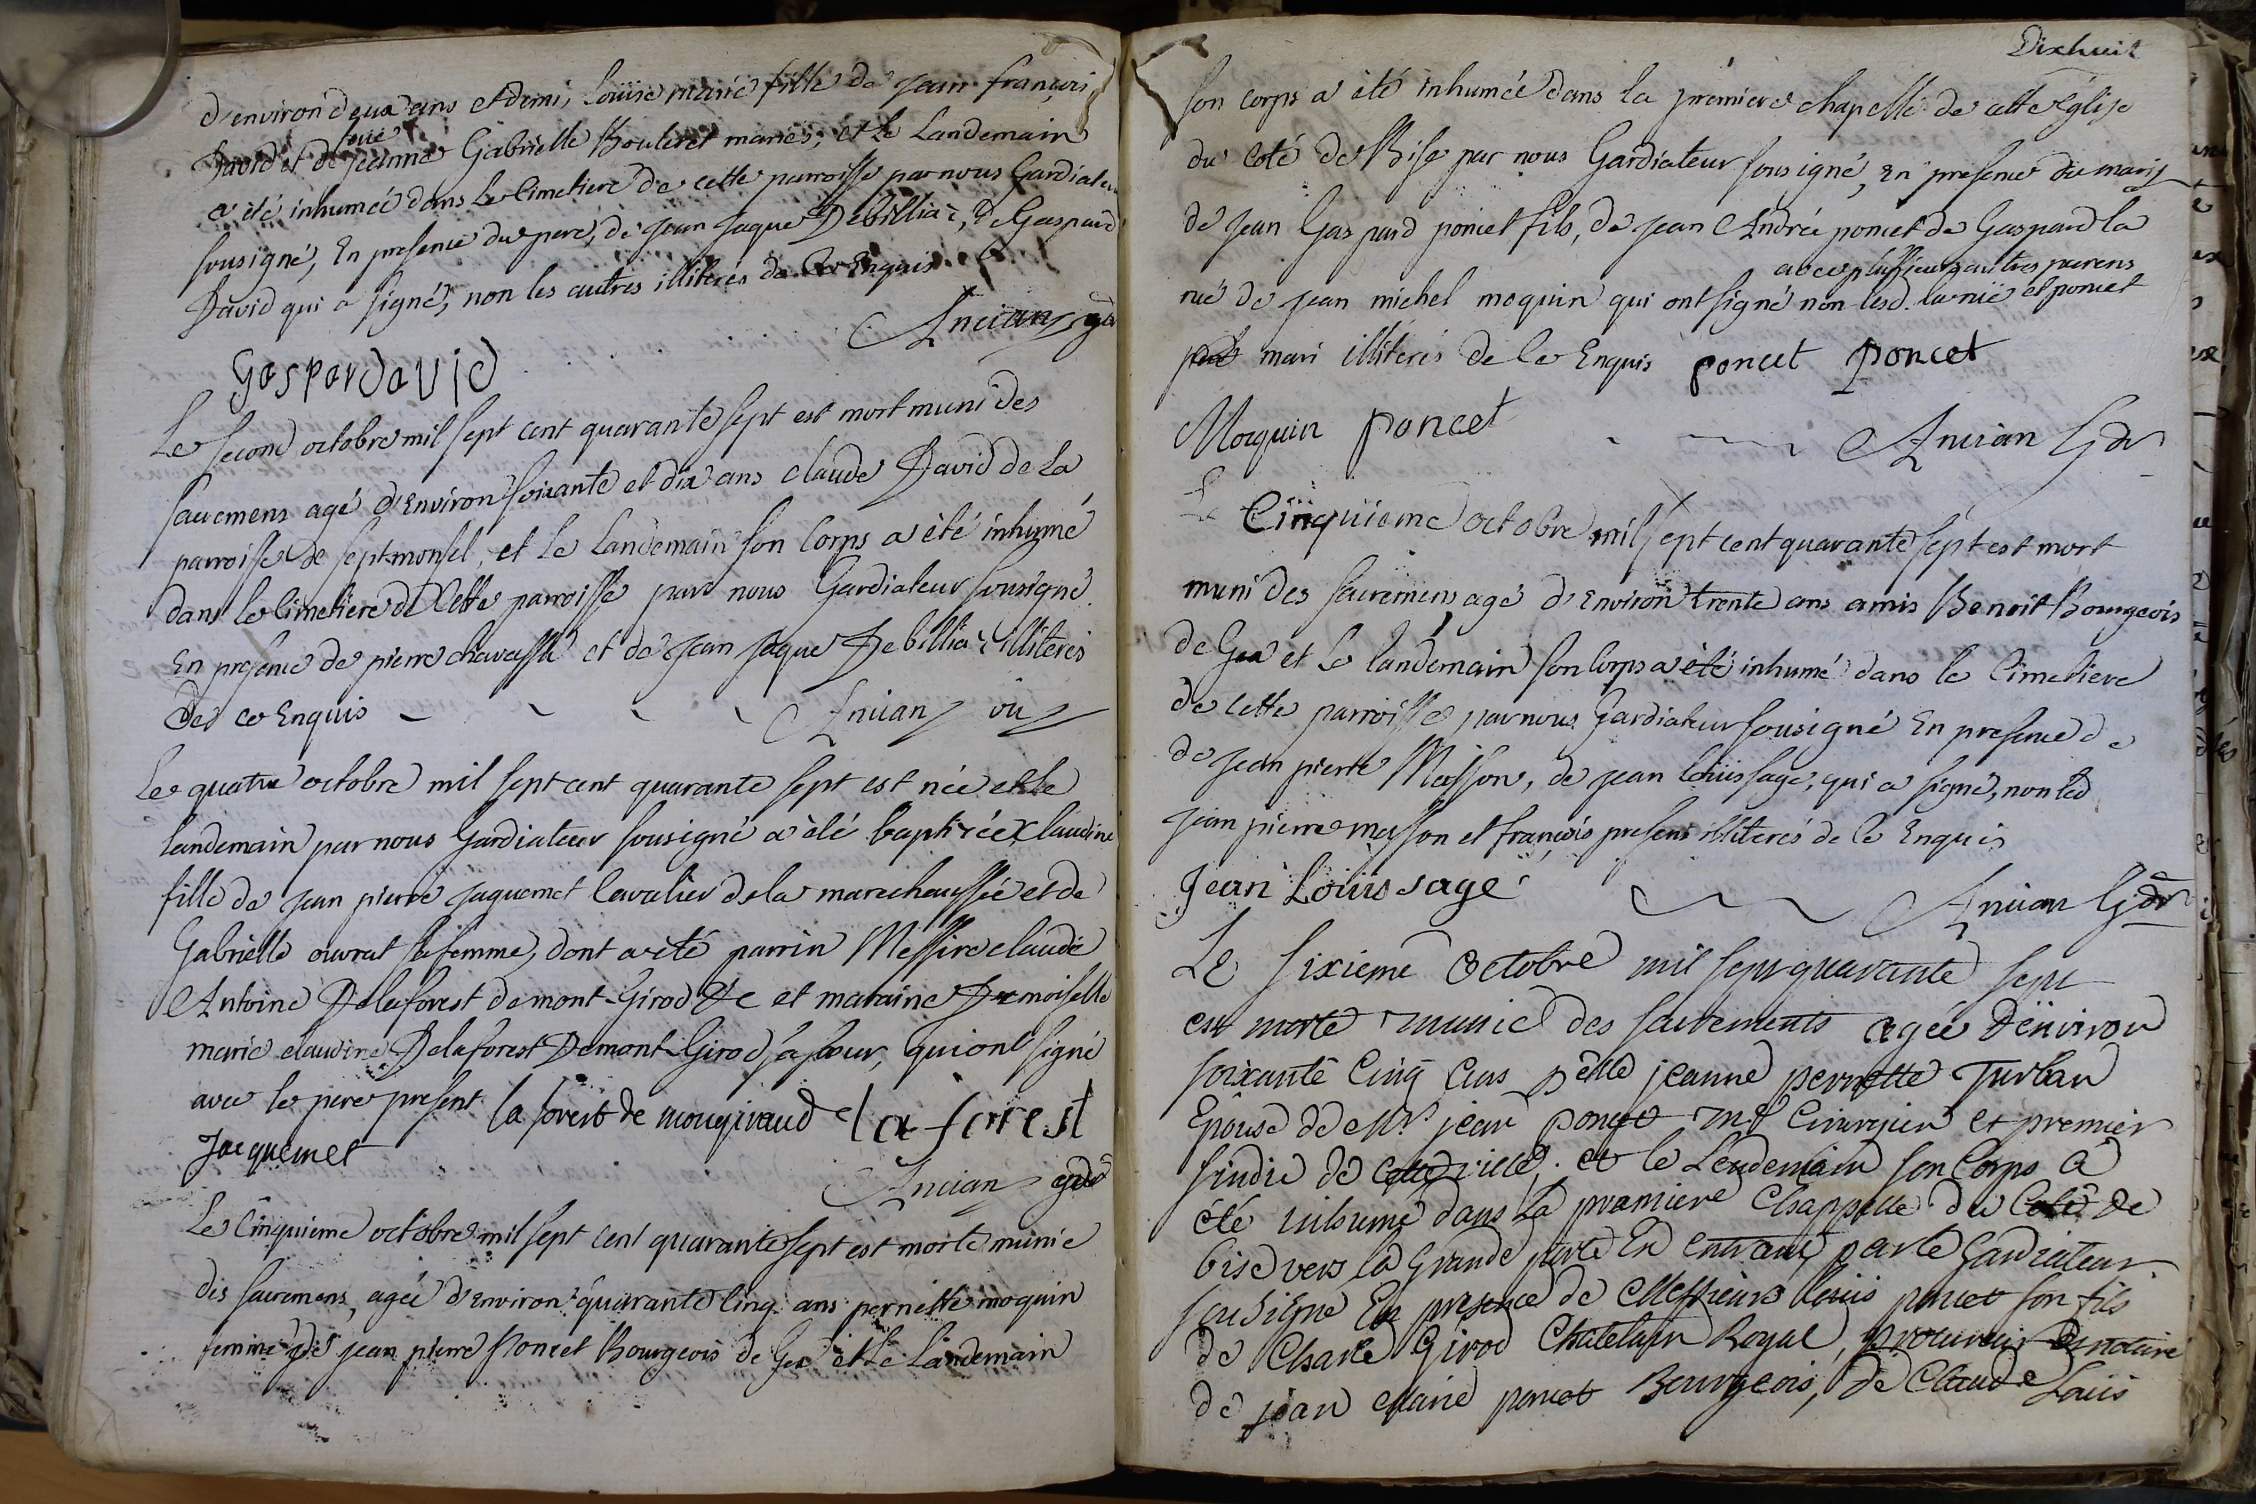 d'environ deux ans et demi, Louise marie fille de jean françois
David et de jeanne Gabrielle Bouleret mariés, et le Landemain
a été inhumée dans le Cimetiere de cette parroisse par nous Gardiateur
sousigné, En presence du pere, de jean jaque Debillia, de Gaspard
David qui a signé, non les autres illiterés de ce Enquis
Ancian
Gaspar David
Le second octobre mil sept cent quarante sept est mort muni des
sacremens agé d'Environ soixante et dix ans claude David de La
parroisse de septmonsel, et Le Landemain son Corps a été inhumé
dans le Cimetiere de Cette parroisse par nous Gardiateur sousigné
En presence de pierre chavassu et de jean jaque Debillia illiterés
de ce Enquis Ancian
Le quatre octobre mil sept cent quarante sept est née et le
landemain par nous Gardiateur sousigné a été baptisée Claudine
fille de jean pierre jaquemet Cavalier de la marechaussée et de
Gabrielle ouvrat sa femme, dont a été parrin Messire claude
Antoine Delaforest de mont-Girod &c et maraine Demoiselle
marie claudine Delaforest Demont-Girod sa soeur, qui ont signé
avec le pere present la forest de mongiraud la forest
Jacquemet
Ancian
Le Cinquieme octobre mil sept cent quarante sept est morte munie
des sacremens, agée d'Environ quarante cinq ans pernette moquin
femme de jean pierre Poncet Bourgeois de Gex et Le Landemain
Dixhuit
son corps a été inhumée dans la premiere chapelle de cette Eglise
du coté de Bise par nous Gardiateur sousigné, En presence du mary
de jean Gaspard poncet fils, de jean André poncet de Gaspard la
avec plussieurs autres parens
rue de jean michel moquin qui ont signé non lesd. larüe et poncet
mari illiterés de ce Enquis poncet poncet
Moquin poncet
Ancian Gdr
Le Cinquieme octobre mil sept cent quarante sept est mort
muni des sacremens agé d'Environ trente ans amis Benoit Bourgeois
de Gex et Le landemain son Corps a été inhumé dans le Cimetiere
de Cette parroisse par nous Gardiateur sousigné En presence de
de jean pierre Masson, de jean Loüis sage, qui a signé, non led
jean pierre masson et françois presens illiterés de ce Enquis
Jean Loüis sage
Ancian Gdr
Le sixieme Octobre mil sept quarante sept
est morte munie des sacrements agée D'environ
soixante Cinq ans jeanne pernette Turban
Epouse de Mr jean poncet Me Cirurgien et premier
sindic de Cette ville, et le Lendemain son Corps a
eté inhumé dans La premiere Chappelle du Coté de
bise vers la Grande porte En Entrant par le Gardiateur
sousigné En presence de Messieurs Loüis poncet son fils
de Charle Girod Chatelain Royal, procureur et notaire
de jean Claire poncet Bourgeois, de Claude Loüis